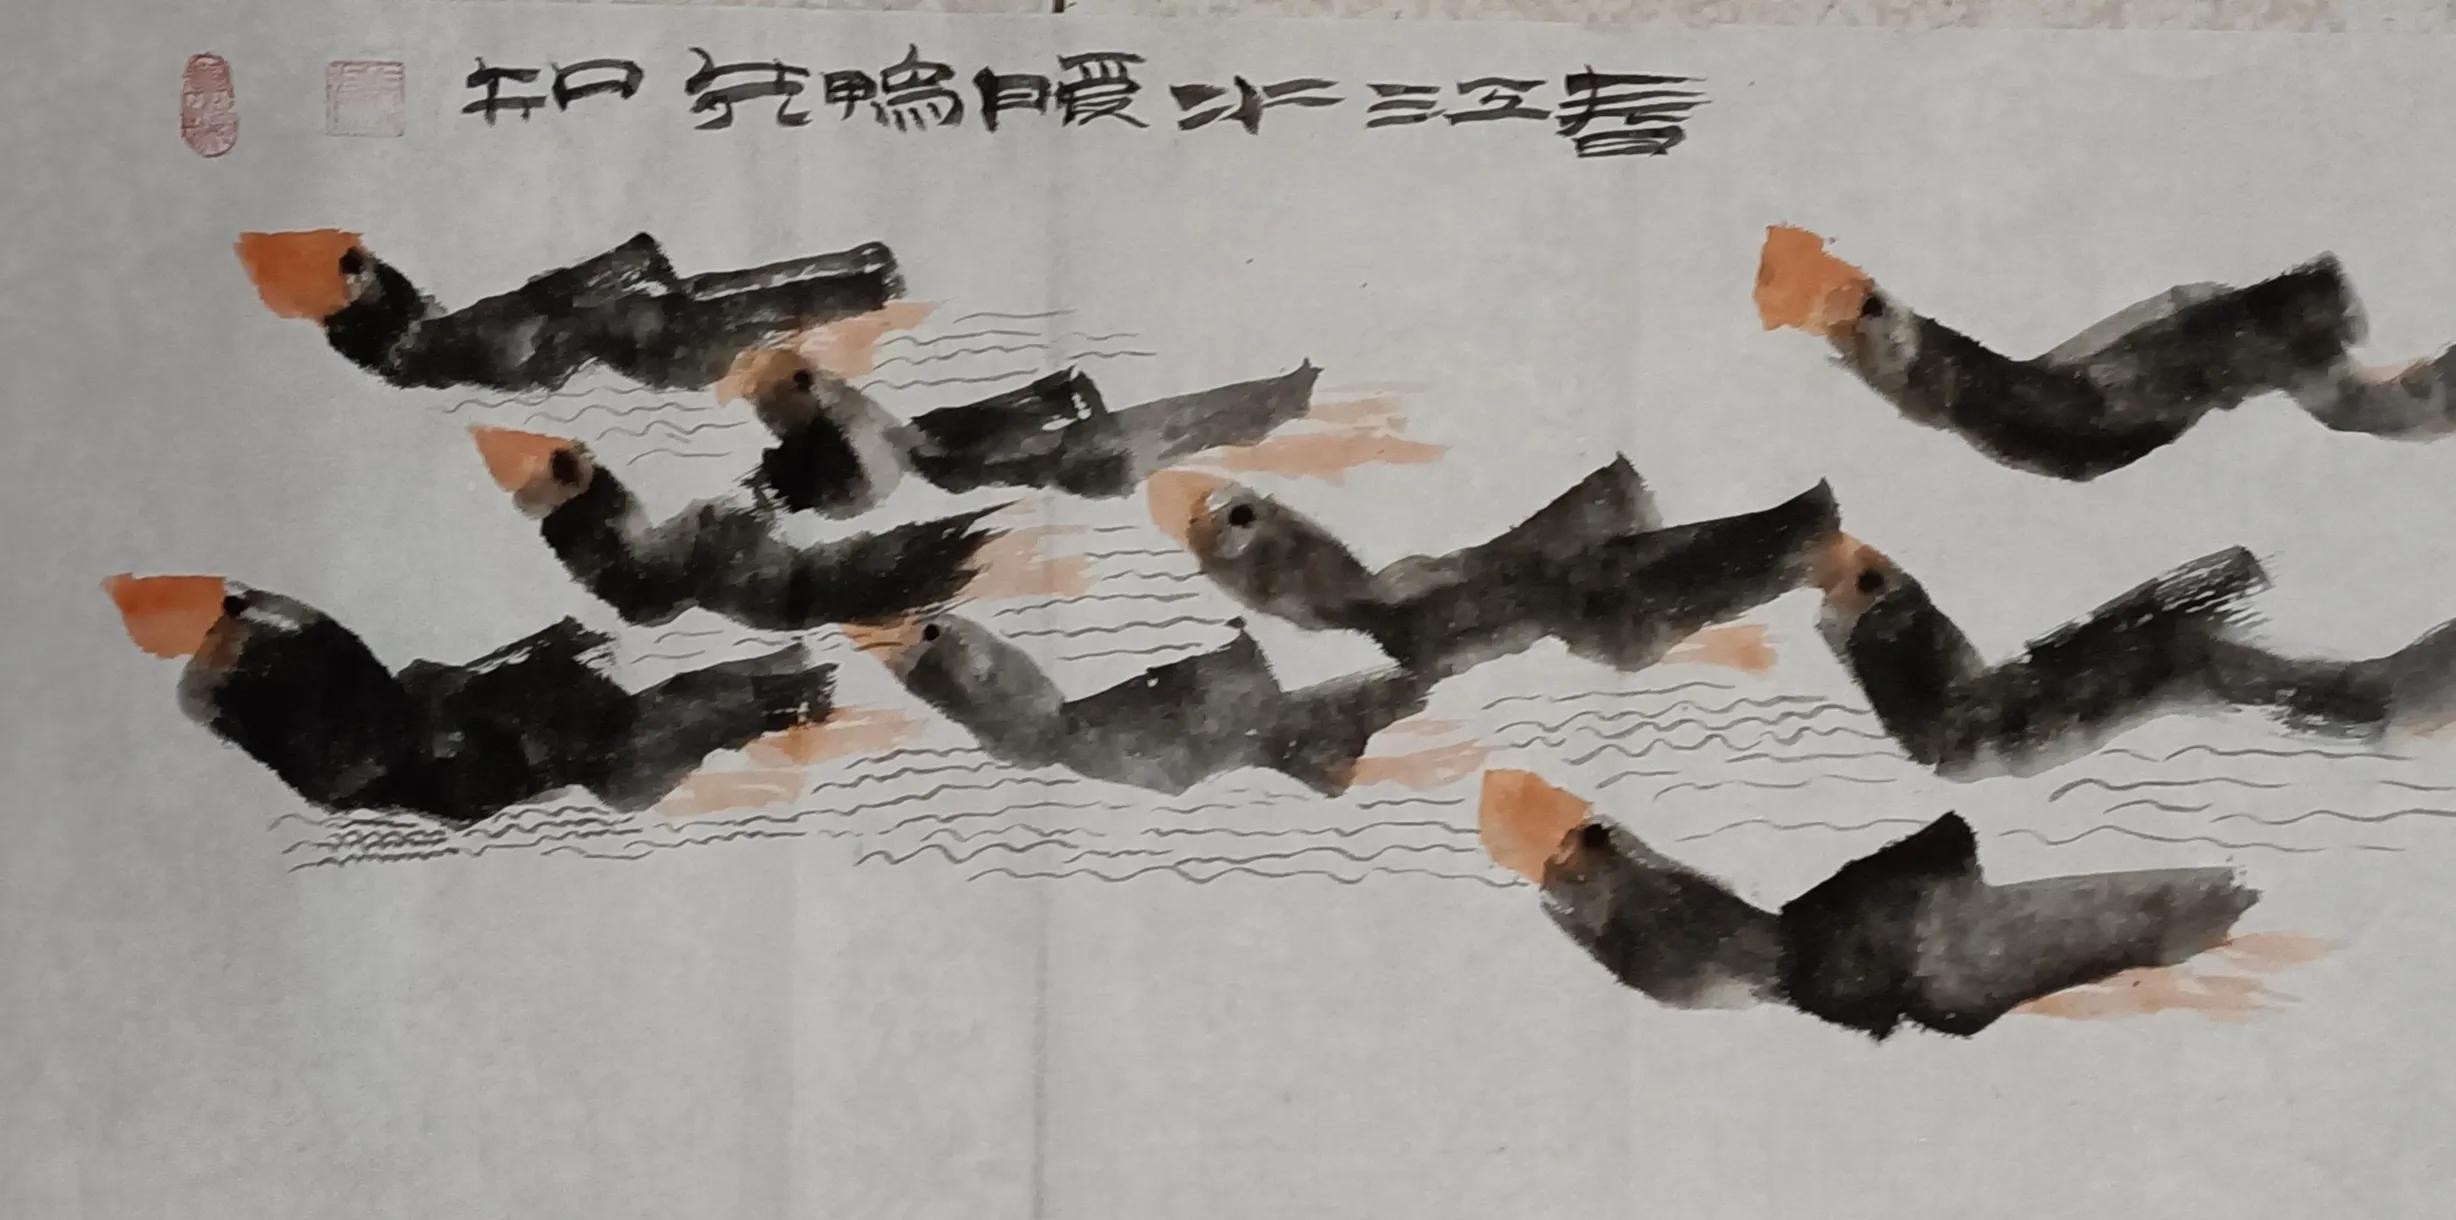 春江水暖鸭先知